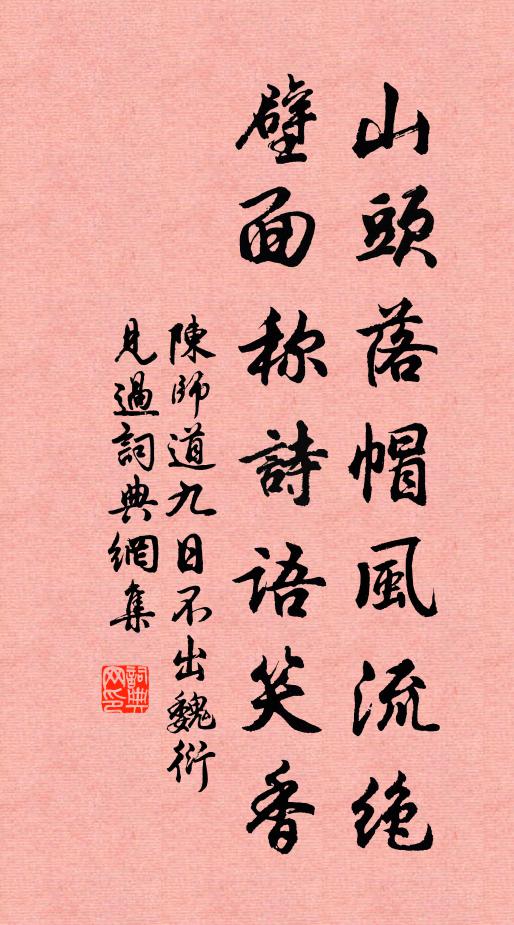 山頭落帽風流絶
壁面称詩語笑香
陳師道九日不出魏衍
見過詞典網集
詞典網印